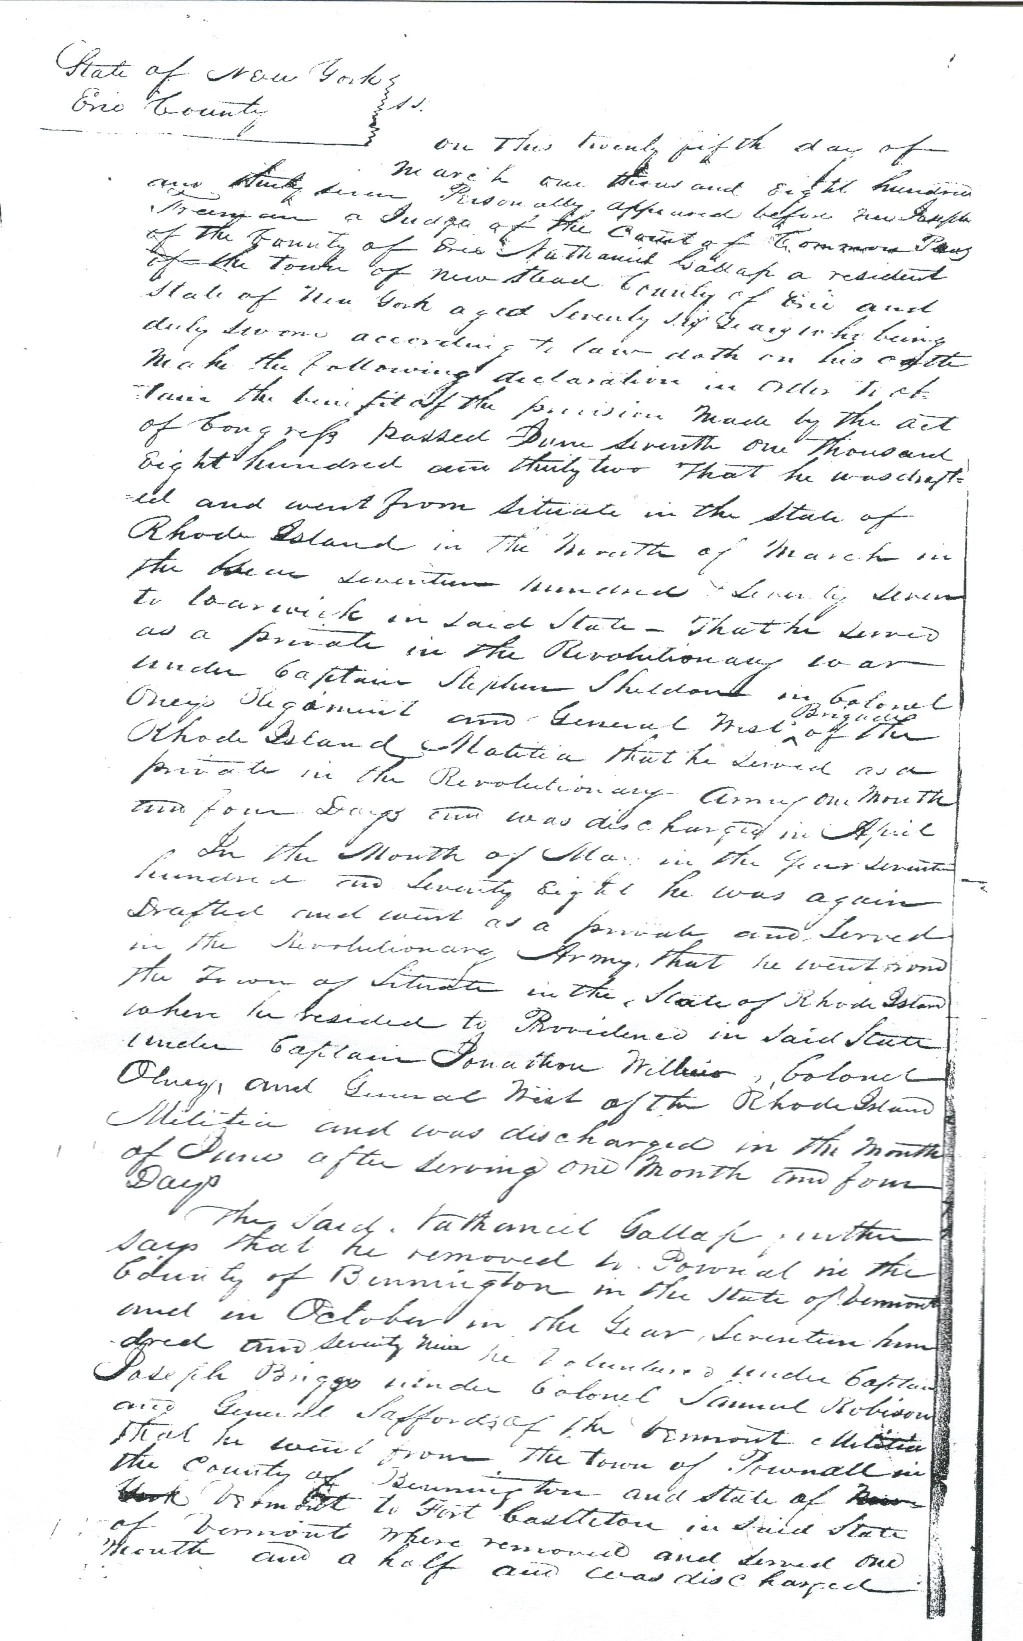 State of New York
Erie County ss.
on this twenty fifth day of
March one thousand Eight hundred
and thirty seven Personally appeared before me Joseph
Freeman a Judge of the Court of Common Pleas
of the County of Erie Nathaniel Gallap a resident
of the town of new stead County of Erie and
State of New York aged Seventy six Years who being
duly sworn according to law doth on his oath
Make the following declaration in order to ob
tain the benifit of the provision Made by the act
of Congress passed June seventh one thousand
Eight hundred and thirty two That he was draft=
=ed and went from Situate in the State of
Rhode Island in the Month of March in
the Year seventeen hundred & Seventy seven
to Warwick in said State – That he served
as a private in the Revolutionary war
under Captain Stephen Sheldon in Colonel
Oneys Regiment and General West Brigade of the
Rhode Island Malitia that he served as a
private in the Revolutionary Army one Month
and four Days and was discharged in April
In the Month of May in the year seventeen
hundred and seventy Eight he was again
Drafted and went as a private and Served
in the Revolutionary Army, that he went from
the Town of Situate in the State of Rhode Island
where he resided to Providence in said State
under Captain Jonathon Willius, Colonel
Olney, and General West of the Rhode Island
Militia and was discharged in the Month
of June after serving one Month and four
Days
The said Nathaniel Gallap further
says that he removed to Pownal in the
County of Bennington in the State of Vermont
and in October in the Year, Seventeen hun
dred and seventy nine he Voluntared under Captain
Joseph Briggs under Colonel Samuel Robison
and General Saffords of the Vermont Militia
that he went from the town of Pownall in
the County of Bennington and State of New
York Vermont to Fort Castleton in said State
of Vermont where removed and served one
Month and a half and was discharged